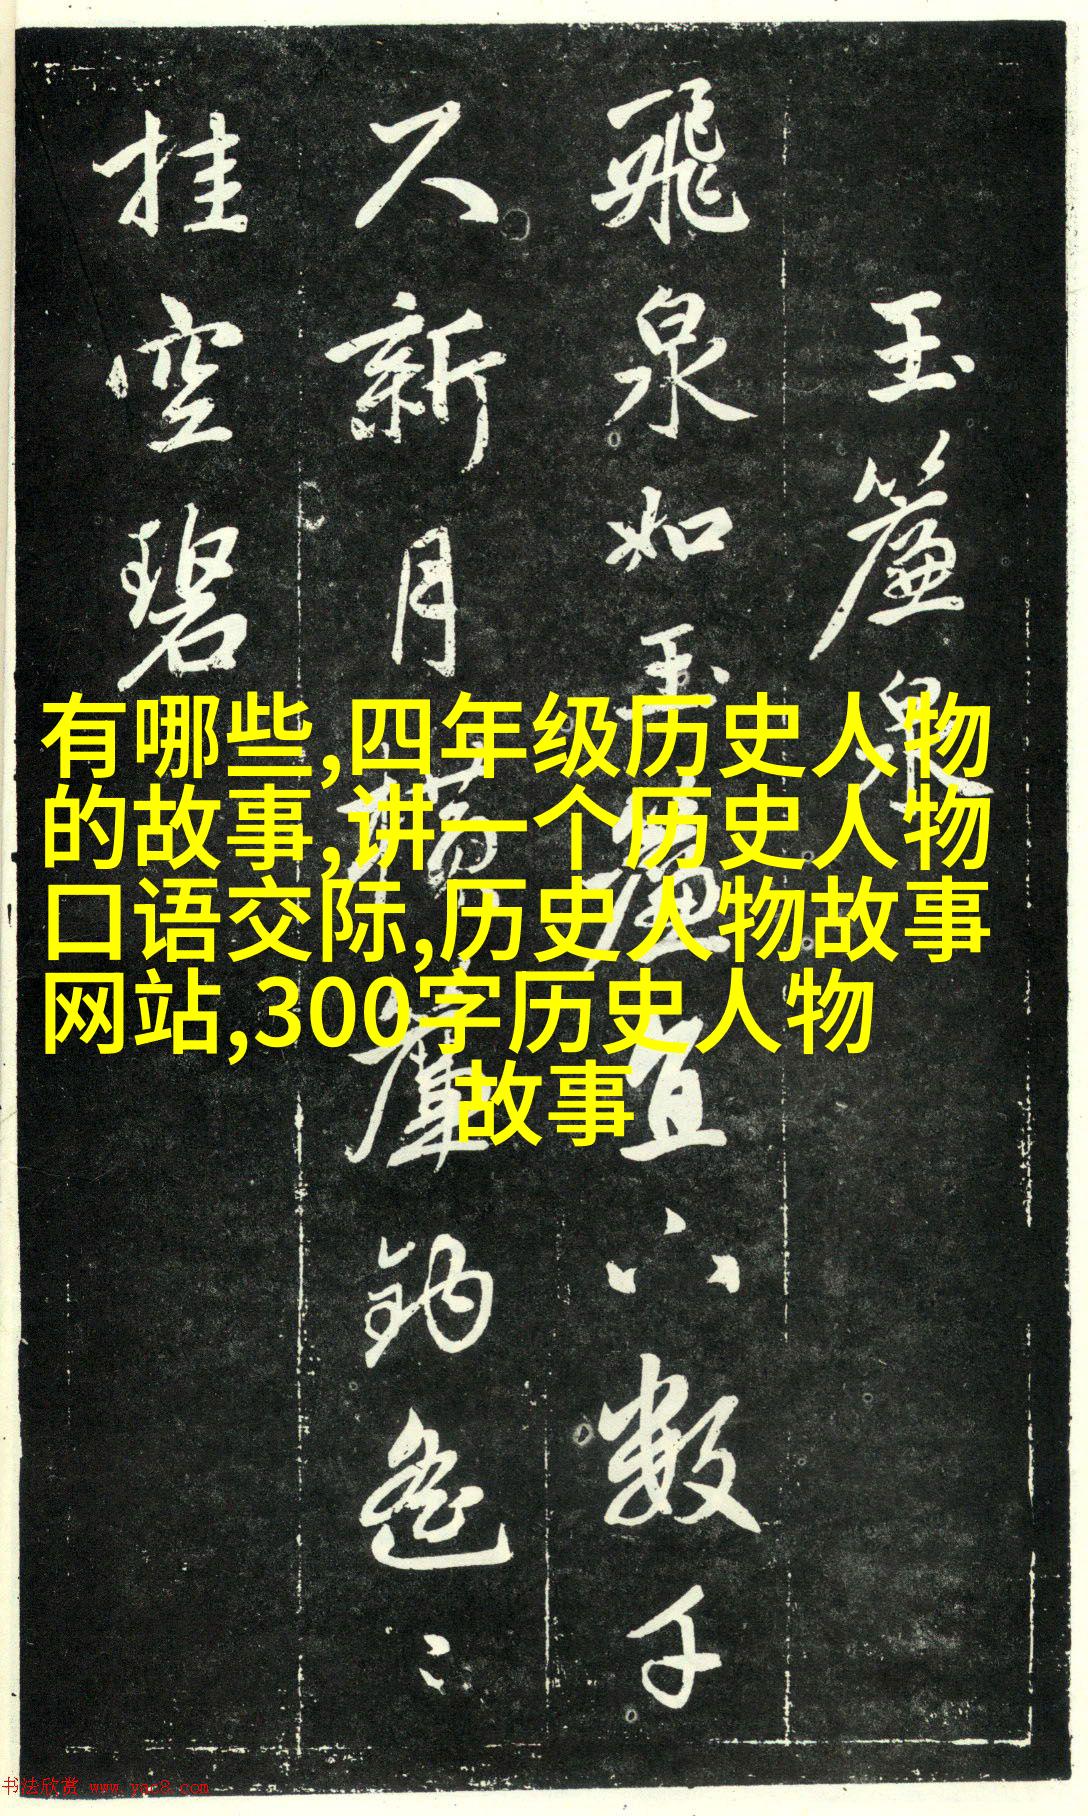 玉簾泉
飛泉如玉簾直下數千
尺新月橫簾鈎遙〻
挂空碧
有哪些,四年级历史人物
的故事,讲一个历史人物
口语交际,历史人物故事
网站,300字历史人物
故事
书法欣赏 www.yac8.com